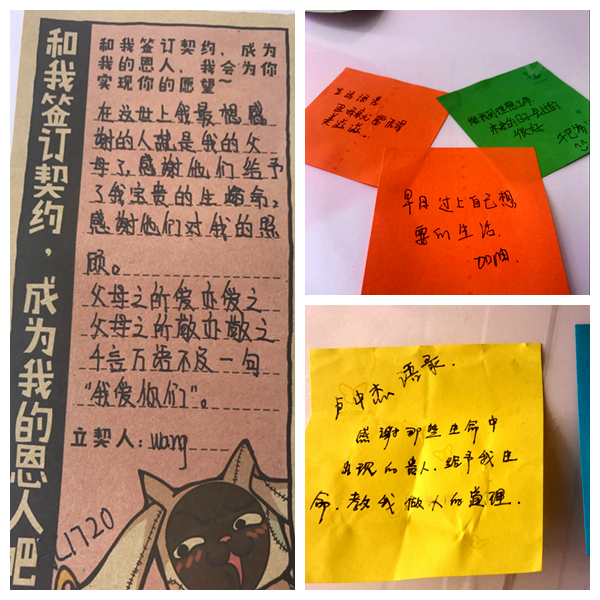 和我签订契约，成为我的恩人吧
和我签订契约，成为
我的恩人，我会为你
实现你的愿望～
在这世上我最想感
谢的人就是我的父
母了,感谢他们给予
了我宝贵的生命,
感谢他们对我的照
顾。
父母之所爱亦爱之
父母之所敬亦敬之
千言万语不及一句
“我爱你们”。
立契人：wang
L1720
生活
未来的日子
很好
早日过上自己想
要的生活.
加油.
卢中杰 语录.
感谢那些生命中
出现的贵人.给予我生
命.教我做人的道理.